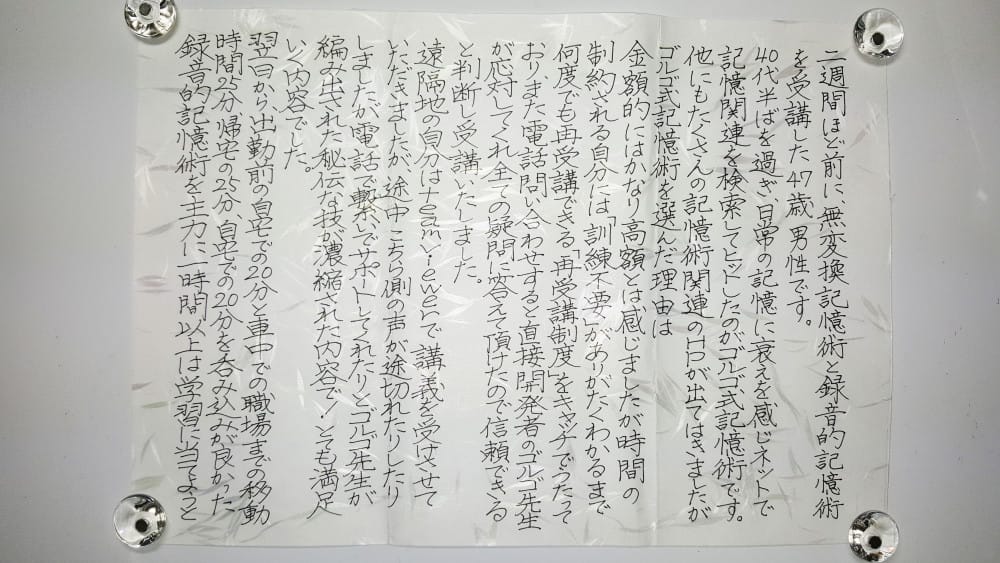 二週間ほど前に、無変換記憶術と録音的記憶術
を受講した47歳男性です。
40代半ばを過ぎ、日常の記憶に衰えを感じネットで
記憶関連を検索してヒットしたのがゴルゴ式記憶術です。
他にもたくさんの記憶術関連のHPが出てはきましたが
ゴルゴ式記憶術を選んだ理由は
金額的にはかなり高額とは感じましたが時間の
制約される自分には「訓練不要」がありがたくわかるまで
何度でも再受講できる「再受講制度」をキャッチでうたって
おりまた電話問い合わせすると直接開発者のゴルゴ先生
が応対してくれ全ての疑問に答えて頂けたので信頼できる
と判断し受講いたしました。
遠隔地の自分はteamviewerで講義を受けさせて
いただきましたが、途中こちら側の声が途切れたりしたり
しましたが、電話で繋いでサポートしてくれたりとゴルゴ先生が
編み出された秘伝な技が濃縮された内容で!とても満足
いく内容でした。
翌日から、出勤前の自宅での20分と車中での職場までの移動
時間25分、帰宅の25分、自宅での20分を呑み込みが良かった
録音的記憶術を主力に一時間以上は学習に当てようと